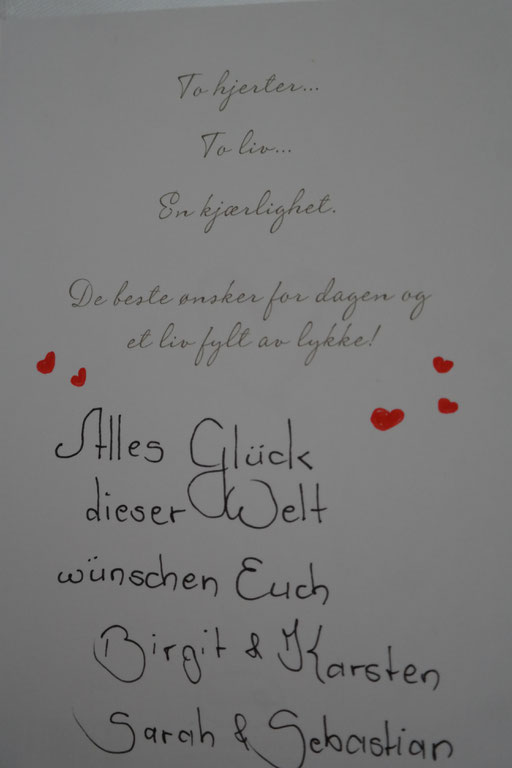 To hjerter...
To liv...
En kjærlighet.
De beste ønsker for dagen og
et liv fylt av lykke!
Alles Glück
dieser Welt
wünschen Euch
Birgit & Karsten
Sarah & Sebastian